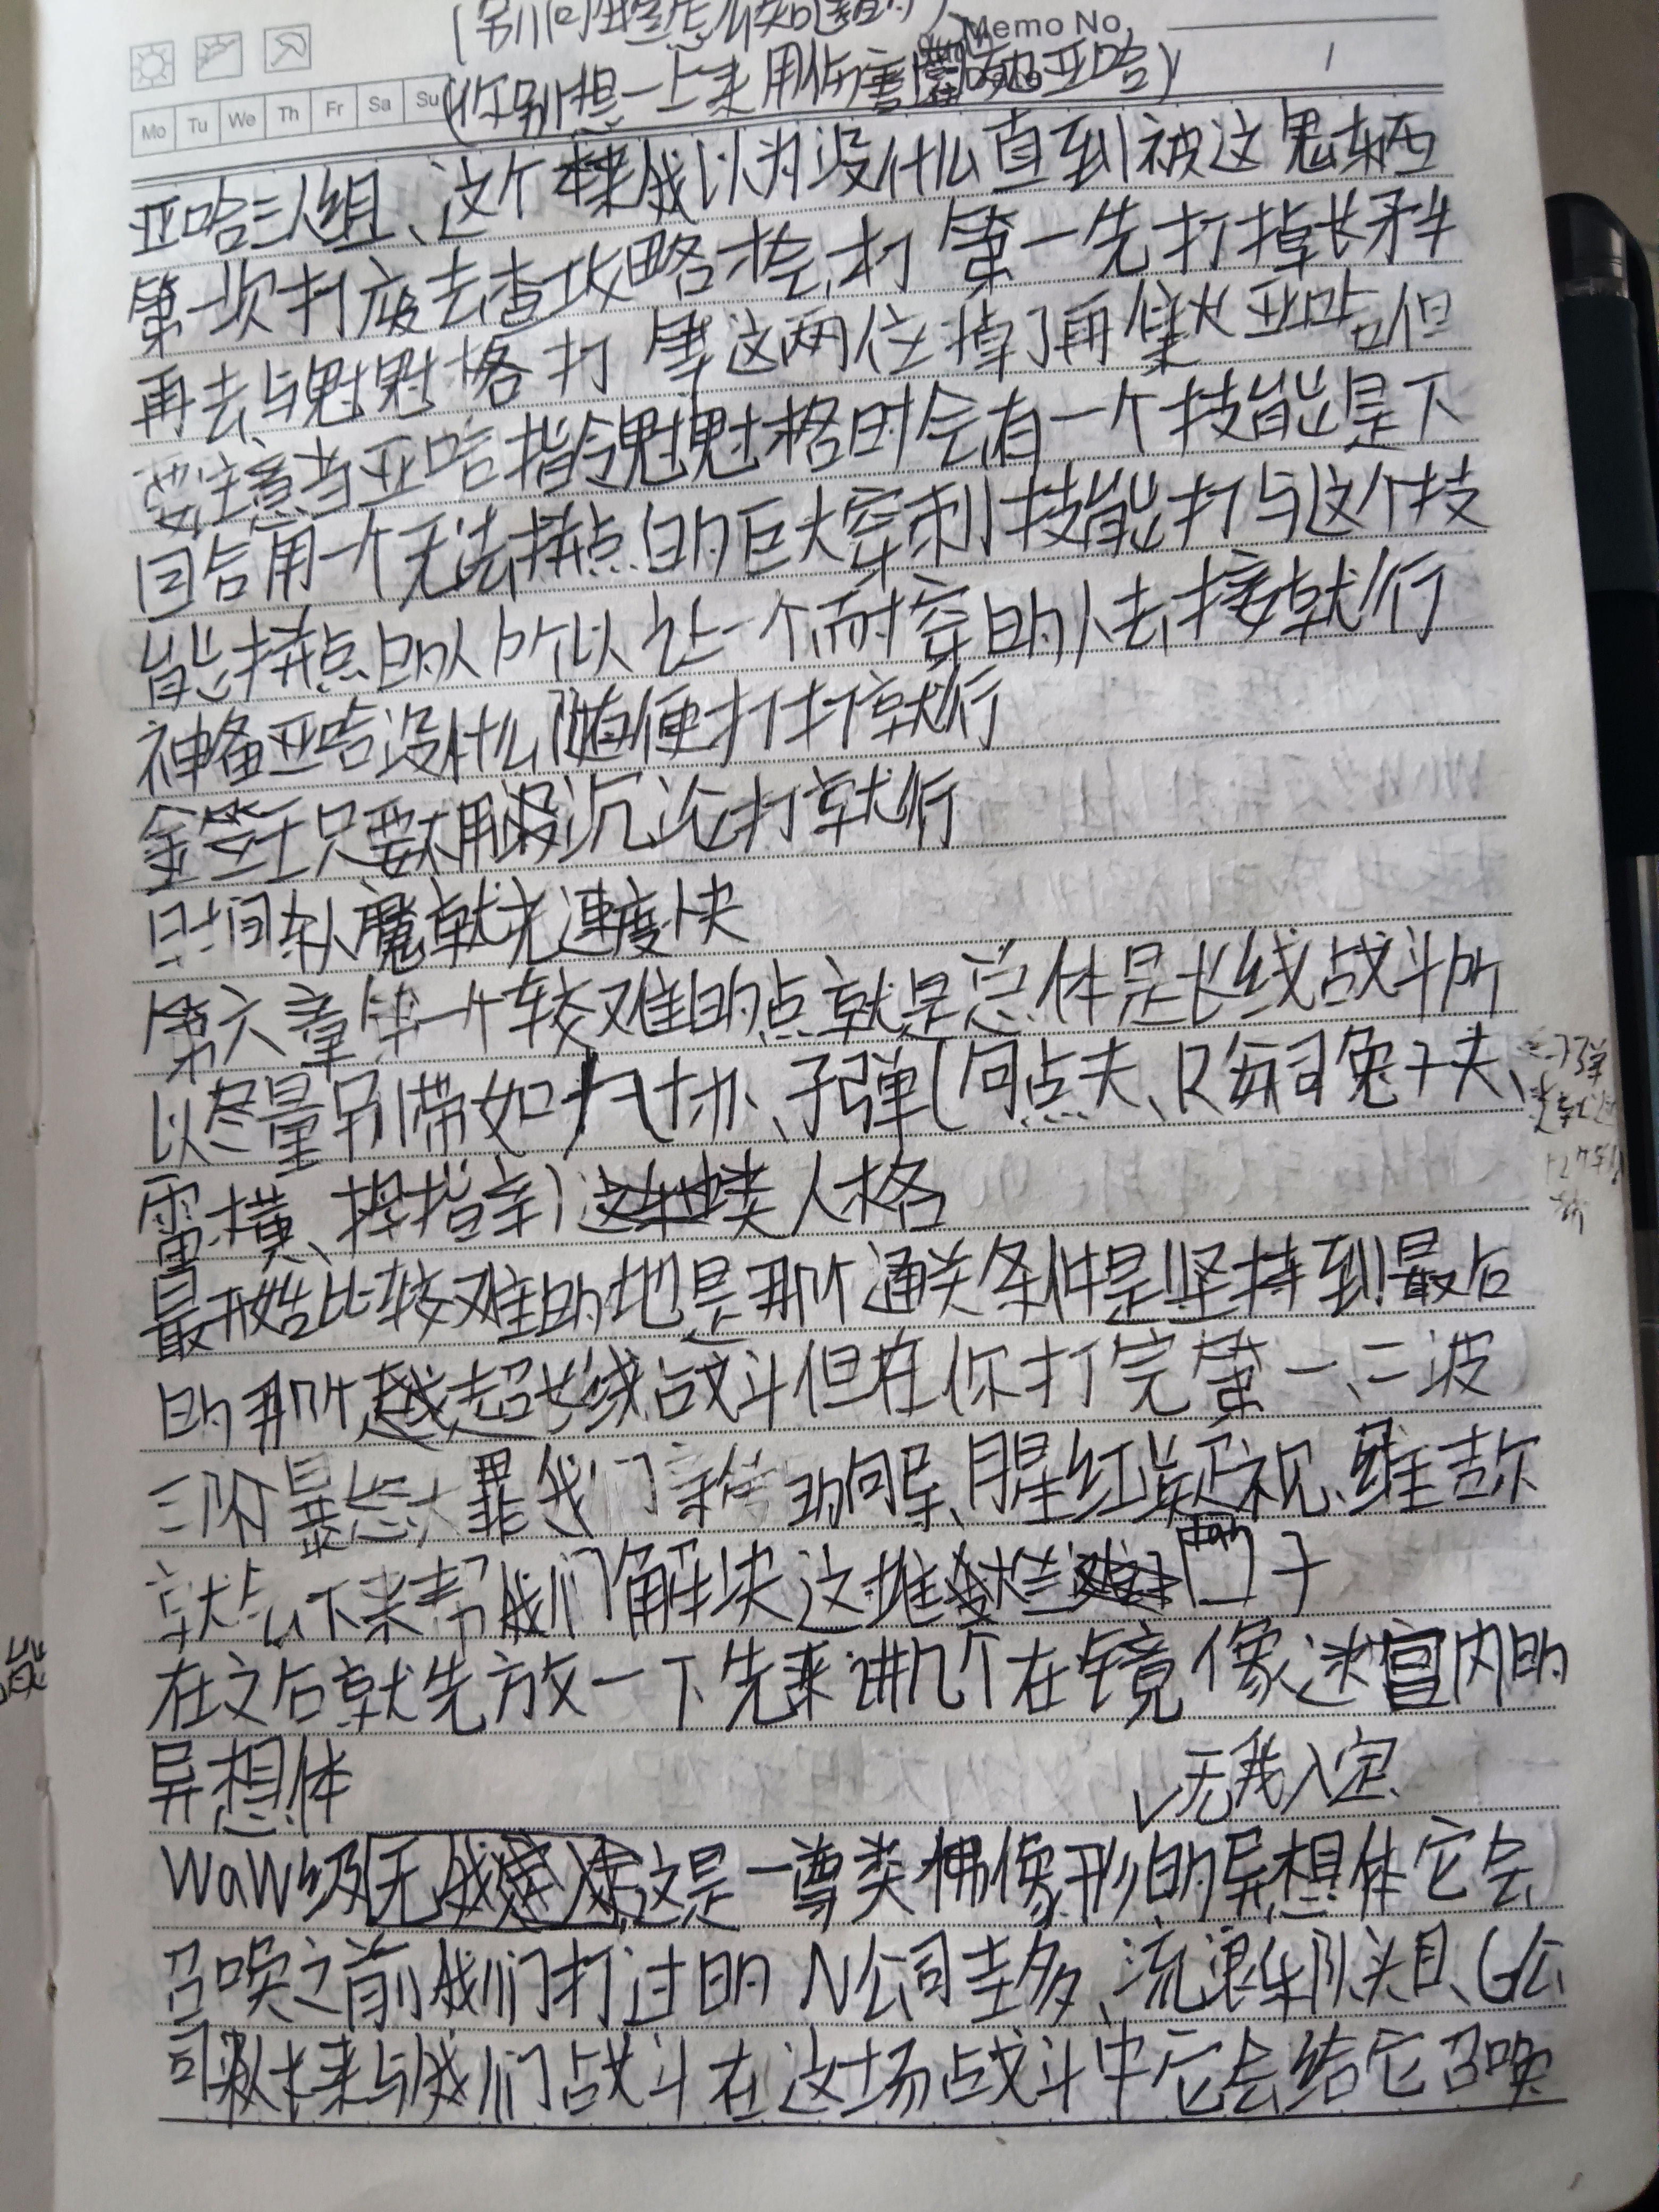 (别问我是怎么知道的)
Memo No.
1
(你别想一上来用伤害亚哈)
Mo Tu We Th Fr Sa Su
亚哈三人组、这个本来我以为没什么直到被这鬼东西
第一次打废去查攻略才会打 第一先打掉长矛手
再去与魁魁格打 等这两位掉了再集火亚哈但
要注意当亚哈指令魁魁格时会有一个技能是下
回合用一个无法拼点的巨大穿刺技能打与这个技
能拼点的人所以让一个耐穿的人去接就行
神备亚哈没什么随便打打就行
金笠王只要不用沉沦打就行
时间杀人魔就尤速度快
第六章第一个较难的点就是总体是长线战斗所
以尽量别带如、子弹(同点夫、R每司兔子夫、
雷横、拇指辛)这类人格
最开始比较难的地是那个通关条件是坚持到最后
的那个超长线战斗但在你打完第一、二波
三阶暴怒大罪我们亲信的向导、腥红凝视、维吉尔
就会下来帮我们解决这堆门子
在之后就先放一下先来讲几个在镜像迷宫内的
异想体
无我入定
WaW级这是一尊类佛像形的异想体它会
召唤之前我们打过的N公司圭多、流浪车队头目、G公
司来与我们战斗在这场战斗中它会给它召唤